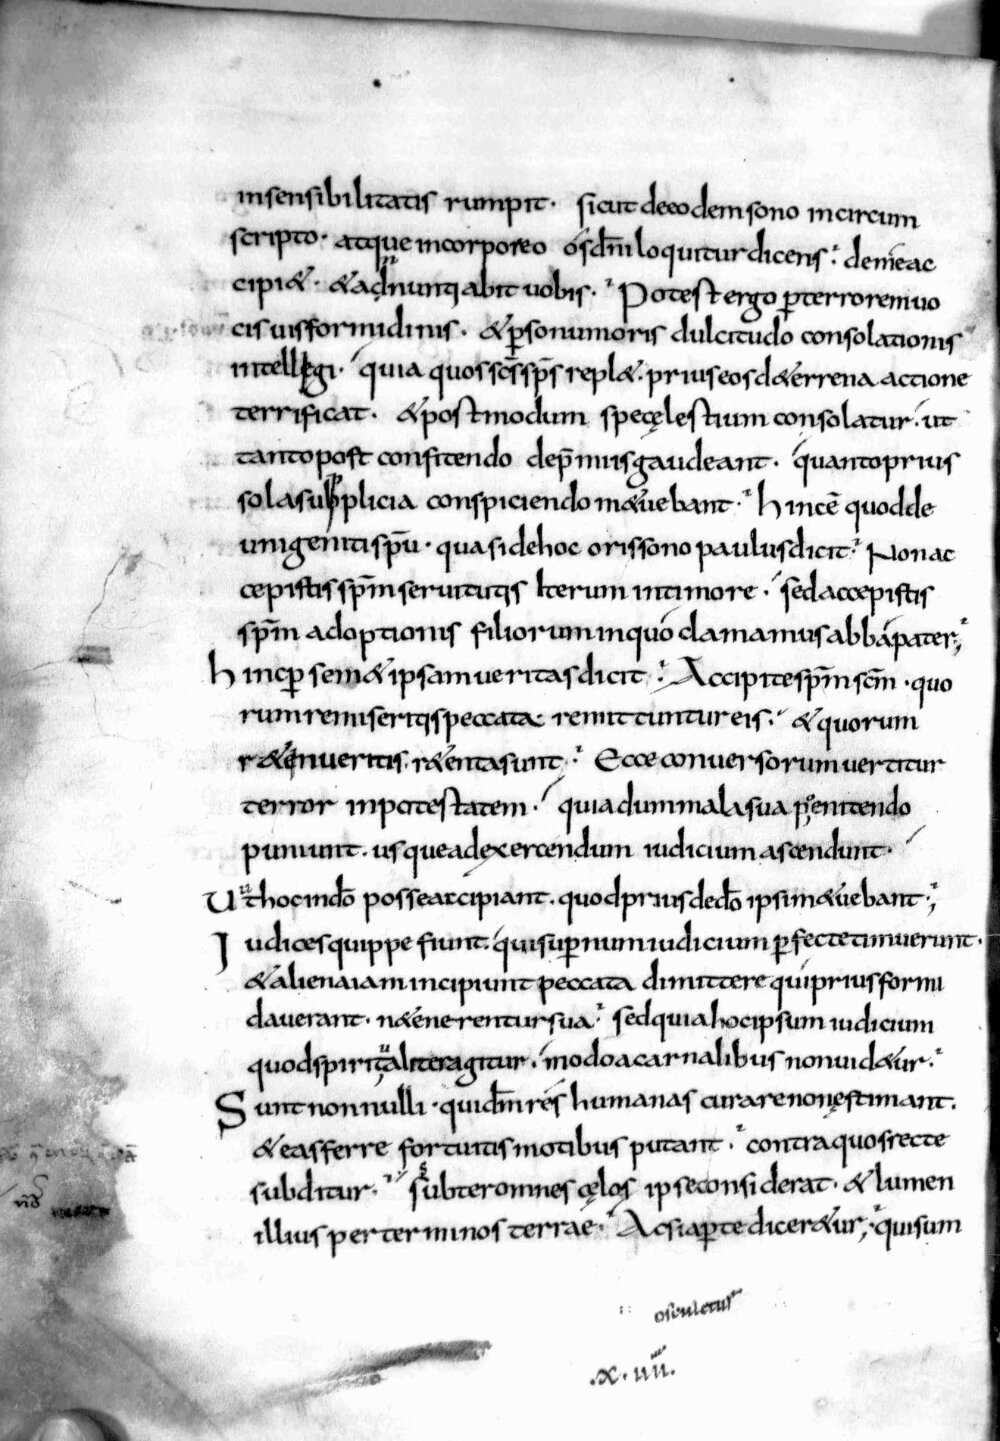 insensibilitatis rumpit· sicut de eodem sono in circum
scripto· atque incorporeo os dn̄i loquitur dicens· de me ac
cipi&· & adnuntiabit uobis· Potest ergo p̱ terrorem uo
cis uis formidinis· & p̱ sonum oris dulcitudo consolationis
intellegi· quia quos sc̄s sp̄s repl&· prius eos de terrena actione
terrificat· & postmodum spe cęlestium consolatur· ut
tanto post confitendo de p̄miis gaudeant· quanto prius
sola supplicia conspiciendo m&uebant· hinc ē quod de
unigeniti sp̄u· quasi de hoc oris sono paulus dicit· Non ac
cepistis sp̄m seruitutis iterum in timore· sed accepistis
sp̄m adoptionis filiorum in quo clamamus abba pater;
hinc p̱ sem&ipsam ueritas dicit· Accipite sp̄m sc̄m· quo
rum remiseritis peccata remittuntur eis· & quorum
r&inueritis r&enta sunt· Ecce conuersorum uertitur
terror in potestatem· quia dum mala sua penitendo
puniunt· usque ad exercendum iudicium ascendunt·
Ut hoc in dō posse accipiant· quod prius de dō ipsi m&uebant;
Iudices quippe fiunt· qui supernum iudicium p̱fecte timuerunt·
& aliena iam incipiunt peccata dimittere qui prius formi
dauerant· n& enerentur sua· sed quia hoc ipsum iudicium
quod spiritualiter agitur· modo a carnalibus non uid&ur·
Sunt nonnulli· qui dm̄ res humanas curare non ęstimant·
& eas ferre fortuitis motibus putant· contra quos recte
subditur· subter omnes cęlos ipse considerat· & lumen
illius per terminos terrae· Ac si ap̱te dicer&ur; qui sum
osculetur
·x·uii·